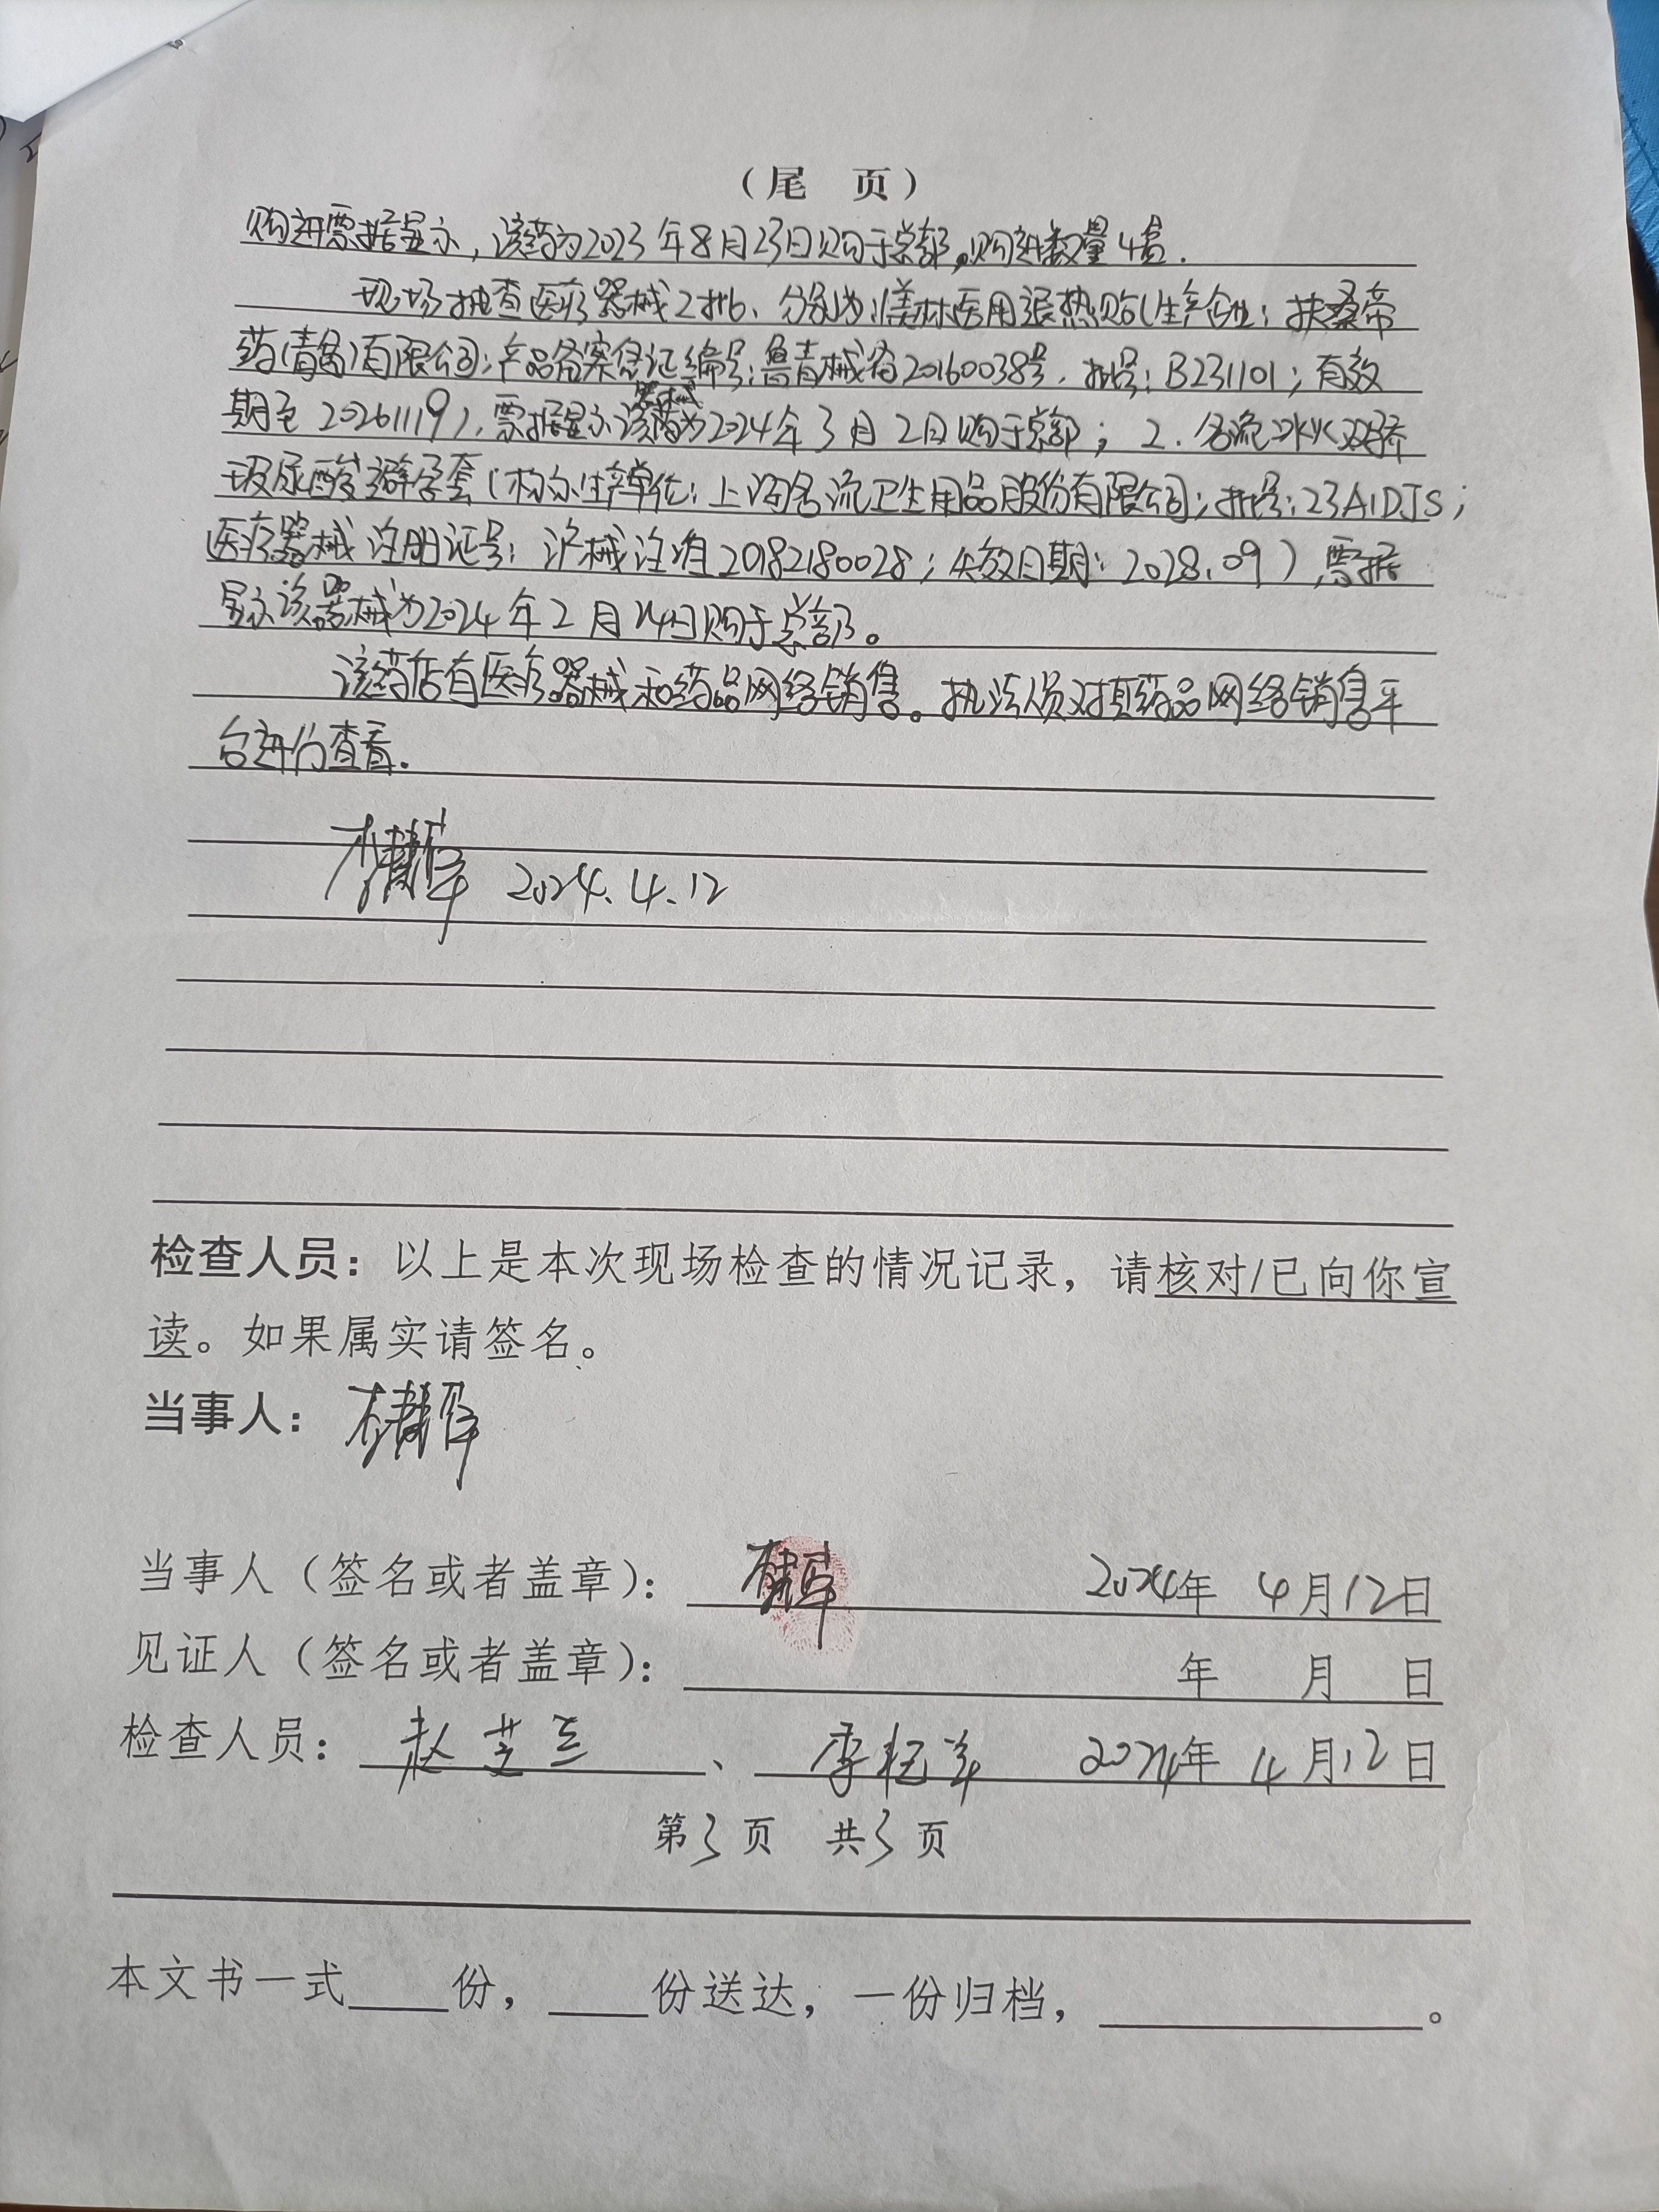 （尾 页）
购进票据显示，该药为2023年8月23日购于总部。购进数量4盒.
现场抽查医疗器械2批、分别为:1美林医用退热贴(生产企业：扶桑帝
药(青岛)有限公司;产品备案凭证编号:鲁青械备20160038号. 批号：B231101；有效
器械
期至20261119)，票据显示该为2024年3月2日购于总部；2.名流
玻尿酸避孕套(标示生产单位：上海名流卫生用品股份有限公司；批号:23A1DJS；
医疗器械注册证号：沪械注准20182180028；失效日期：2028.09），票据
显示该器械为2024年2月14日购于总部。
该药店有医疗器械和药品网络销售。执法人员对其药品网络销售平
台进行查看.
2024.4.12
检查人员：以上是本次现场检查的情况记录，请核对/已向你宣
读。如果属实请签名。
当事人：
当事人（签名或者盖章）： 2024年 4月12日
见证人（签名或者盖章）： 年 月 日
检查人员： 赵芝兰 、 李 2024年 4月12日
第3页 共3页
本文书一式____份，____份送达，一份归档，____________。